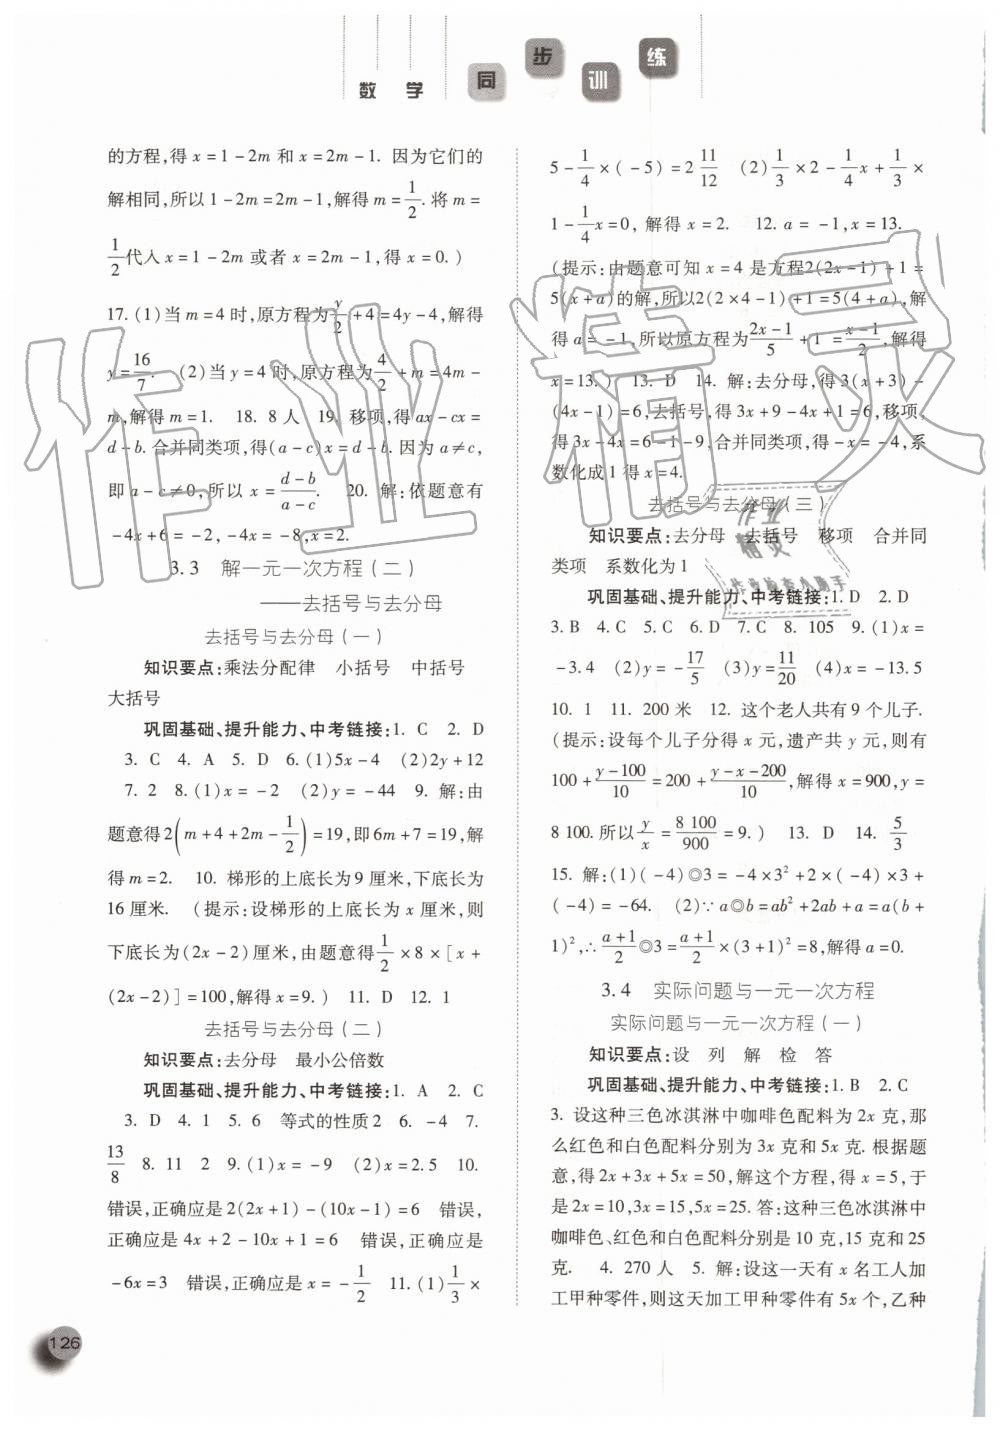 数 学 同 步 训 练
的方程,得 x = 1 - 2m 和 x = 2m - 1. 因为它们的
解相同,所以 1 - 2m = 2m - 1,解得 m = 1/2. 将 m =
1/2代入 x = 1 - 2m 或者 x = 2m - 1,得 x = 0. )
17. (1)当 m = 4 时,原方程为 y/2 + 4 = 4y - 4,解得
y = 16/7. (2)当 y = 4 时,原方程为 4/2 + m = 4m -
m,解得 m = 1. 18. 8 人 19. 移项,得 ax - cx =
d - b. 合并同类项,得(a - c)x = d - b. 因为 a ≠ c,
即 a - c ≠ 0,所以 x = (d - b)/(a - c). 20. 解:依题意有
-4x + 6 = -2, -4x = -8, x = 2.
3.3 解一元一次方程(二)
——去括号与去分母
去括号与去分母(一)
知识要点:乘法分配律 小括号 中括号
大括号
巩固基础、提升能力、中考链接:1. C 2. D
3. C 4. A 5. D 6. (1)5x - 4 (2)2y + 12
7. 2 8. (1)x = -2 (2)y = -44 9. 解:由
题意得 2(m + 4 + 2m - 1/2) = 19,即 6m + 7 = 19,解
得 m = 2. 10. 梯形的上底长为 9 厘米,下底长为
16 厘米. (提示:设梯形的上底长为 x 厘米,则
下底长为(2x - 2)厘米,由题意得 1/2 × 8 × [x +
(2x - 2)] = 100,解得 x = 9. ) 11. D 12. 1
去括号与去分母(二)
知识要点:去分母 最小公倍数
巩固基础、提升能力、中考链接:1. A 2. C
3. D 4. 1 5. 6 等式的性质 2 6. -4 7.
13/8 8. 11 2 9. (1)x = -9 (2)x = 2.5 10.
错误,正确应是 2(2x + 1) - (10x - 1) = 6 错误,
正确应是 4x + 2 - 10x + 1 = 6 错误,正确应是
-6x = 3 错误,正确应是 x = -1/2 11. (1)1/3 ×
5 - 1/4 × ( -5) = 2 11/12 (2)1/3 × 2 - 1/4x + 1/3 ×
1 - 1/4x = 0, 解得 x = 2. 12. a = -1, x = 13.
(提示:由题意可知 x = 4 是方程 2(2x - 1) + 1 =
5(x + a)的解,所以 2(2 × 4 - 1) + 1 = 5(4 + a),解
得 a = -1,所以原方程为 (2x - 1)/5 + 1 = (x - 1)/2,解得
x = 13. ) 13. D 14. 解:去分母,得 3(x + 3) -
(4x - 1) = 6,去括号,得 3x + 9 - 4x + 1 = 6,移项,
得 3x - 4x = 6 - 1 - 9,合并同类项,得 -x = -4,系
数化成 1 得 x = 4.
去括号与去分母(三)
知识要点:去分母 去括号 移项 合并同
类项 系数化为 1
巩固基础、提升能力、中考链接:1. D 2. D
3. B 4. C 5. C 6. D 7. C 8. 105 9. (1)x =
-3.4 (2)y = -17/5 (3)y = 11/20 (4)x = -13.5
10. 1 11. 200 米 12. 这个老人共有 9 个儿子.
(提示:设每个儿子分得 x 元,遗产共 y 元,则有
100 + (y - 100)/10 = 200 + (y - x - 200)/10,解得 x = 900,y =
8 100. 所以 y/x = 8 100/900 = 9. ) 13. D 14. 5/3
15. 解:(1)( -4)◎3 = -4 × 3² + 2 × ( -4) × 3 +
( -4) = -64. (2)∵ a◎b = ab² + 2ab + a = a(b +
1)²,∴ (a + 1)/2 ◎3 = (a + 1)/2 × (3 + 1)² = 8,解得 a = 0.
3.4 实际问题与一元一次方程
实际问题与一元一次方程(一)
知识要点:设 列 解 检 答
巩固基础、提升能力、中考链接:1. B 2. C
3. 设这种三色冰淇淋中咖啡色配料为 2x 克,那
么红色和白色配料分别为 3x 克和 5x 克. 根据题
意,得 2x + 3x + 5x = 50,解这个方程,得 x = 5,于
是 2x = 10,3x = 15,5x = 25. 答:这种三色冰淇淋中
咖啡色、红色和白色配料分别是 10 克,15 克和 25
克. 4. 270 人 5. 解:设这一天有 x 名工人加
工甲种零件,则这天加工甲种零件有 5x 个,乙种
126
作业精灵
作业
精灵
作业检查小助手